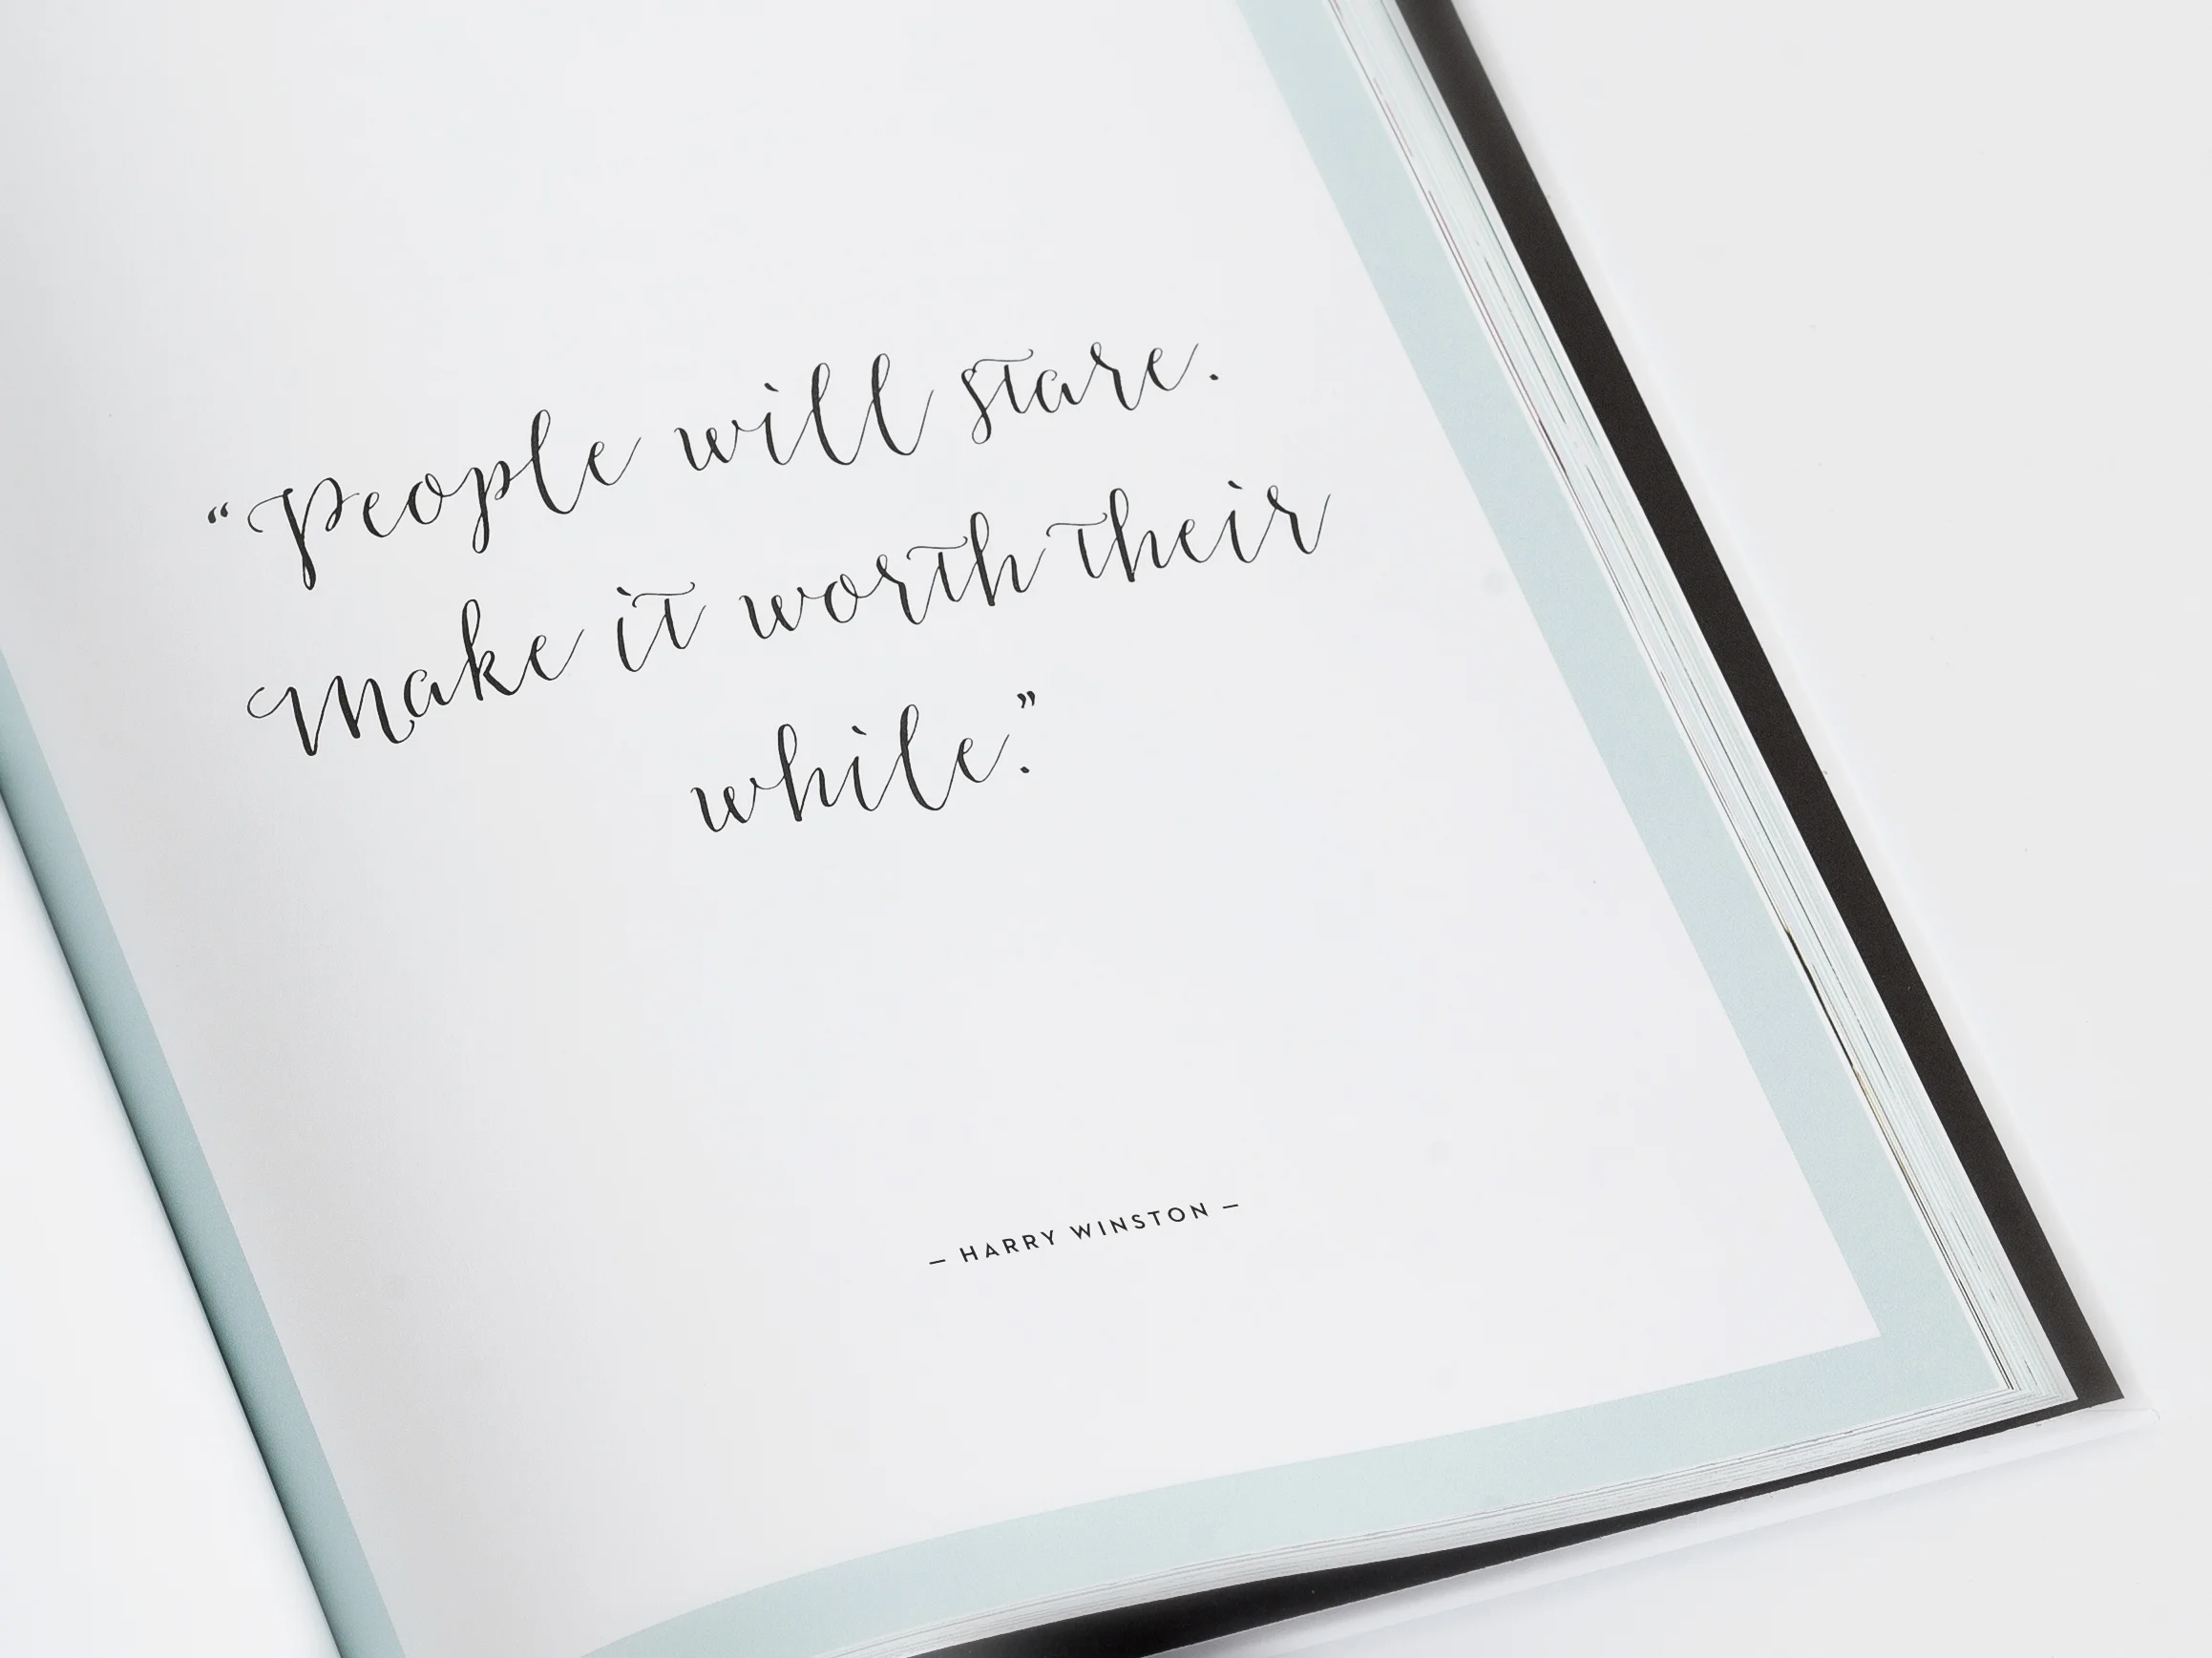 “People will stare.
Make it worth their
while.”
— HARRY WINSTON —